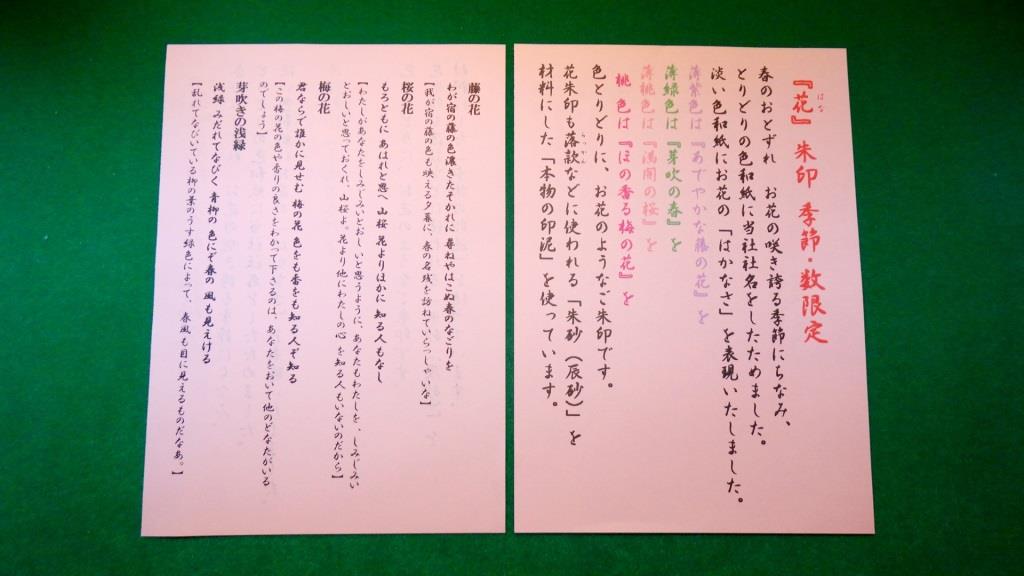 『花』朱印 季節・数限定
はな
春のおとずれ お花の咲き誇る季節にちなみ、
とりどりの色和紙に当社社名をしたためました。
淡い色和紙にお花の「はかなさ」を表現いたしました。
薄紫色は『あでやかな藤の花』を
薄緑色は『芽吹の春』を
薄桃色は『満開の桜』を
桃 色は『ほの香る梅の花』を
色とりどりに、お花のようなご朱印です。
花朱印も落款などに使われる「朱砂（辰砂）」を
らっかん
材料にした「本物の印泥」を使っています。
藤の花
わが宿の藤の色濃きたそかれに 尋ねやはこぬ春のなごりを
【我が宿の藤の色も映える夕暮に、春の名残を訪ねていらっしゃいな】
桜の花
もろともに あはれと思へ 山桜 花よりほかに 知る人もなし
【わたしがあなたをしみじみいとおしいと思うように、あなたもわたしを、しみじみい
とおしいと思っておくれ、山桜よ。花より他にわたしの心を知る人もいないのだから】
梅の花
君ならで誰かに見せむ 梅の花 色をも香をも 知る人ぞ知る
【この梅の花の色や香りの良さをわかって下さるのは、あなたをおいて他のどなたがいる
のでしょう】
芽吹きの浅緑
浅緑 みだれてなびく 青柳の 色にぞ春の 風も見えける
【乱れてなびいている柳の葉のうす緑色によって、春風も目に見えるものだなあ。】